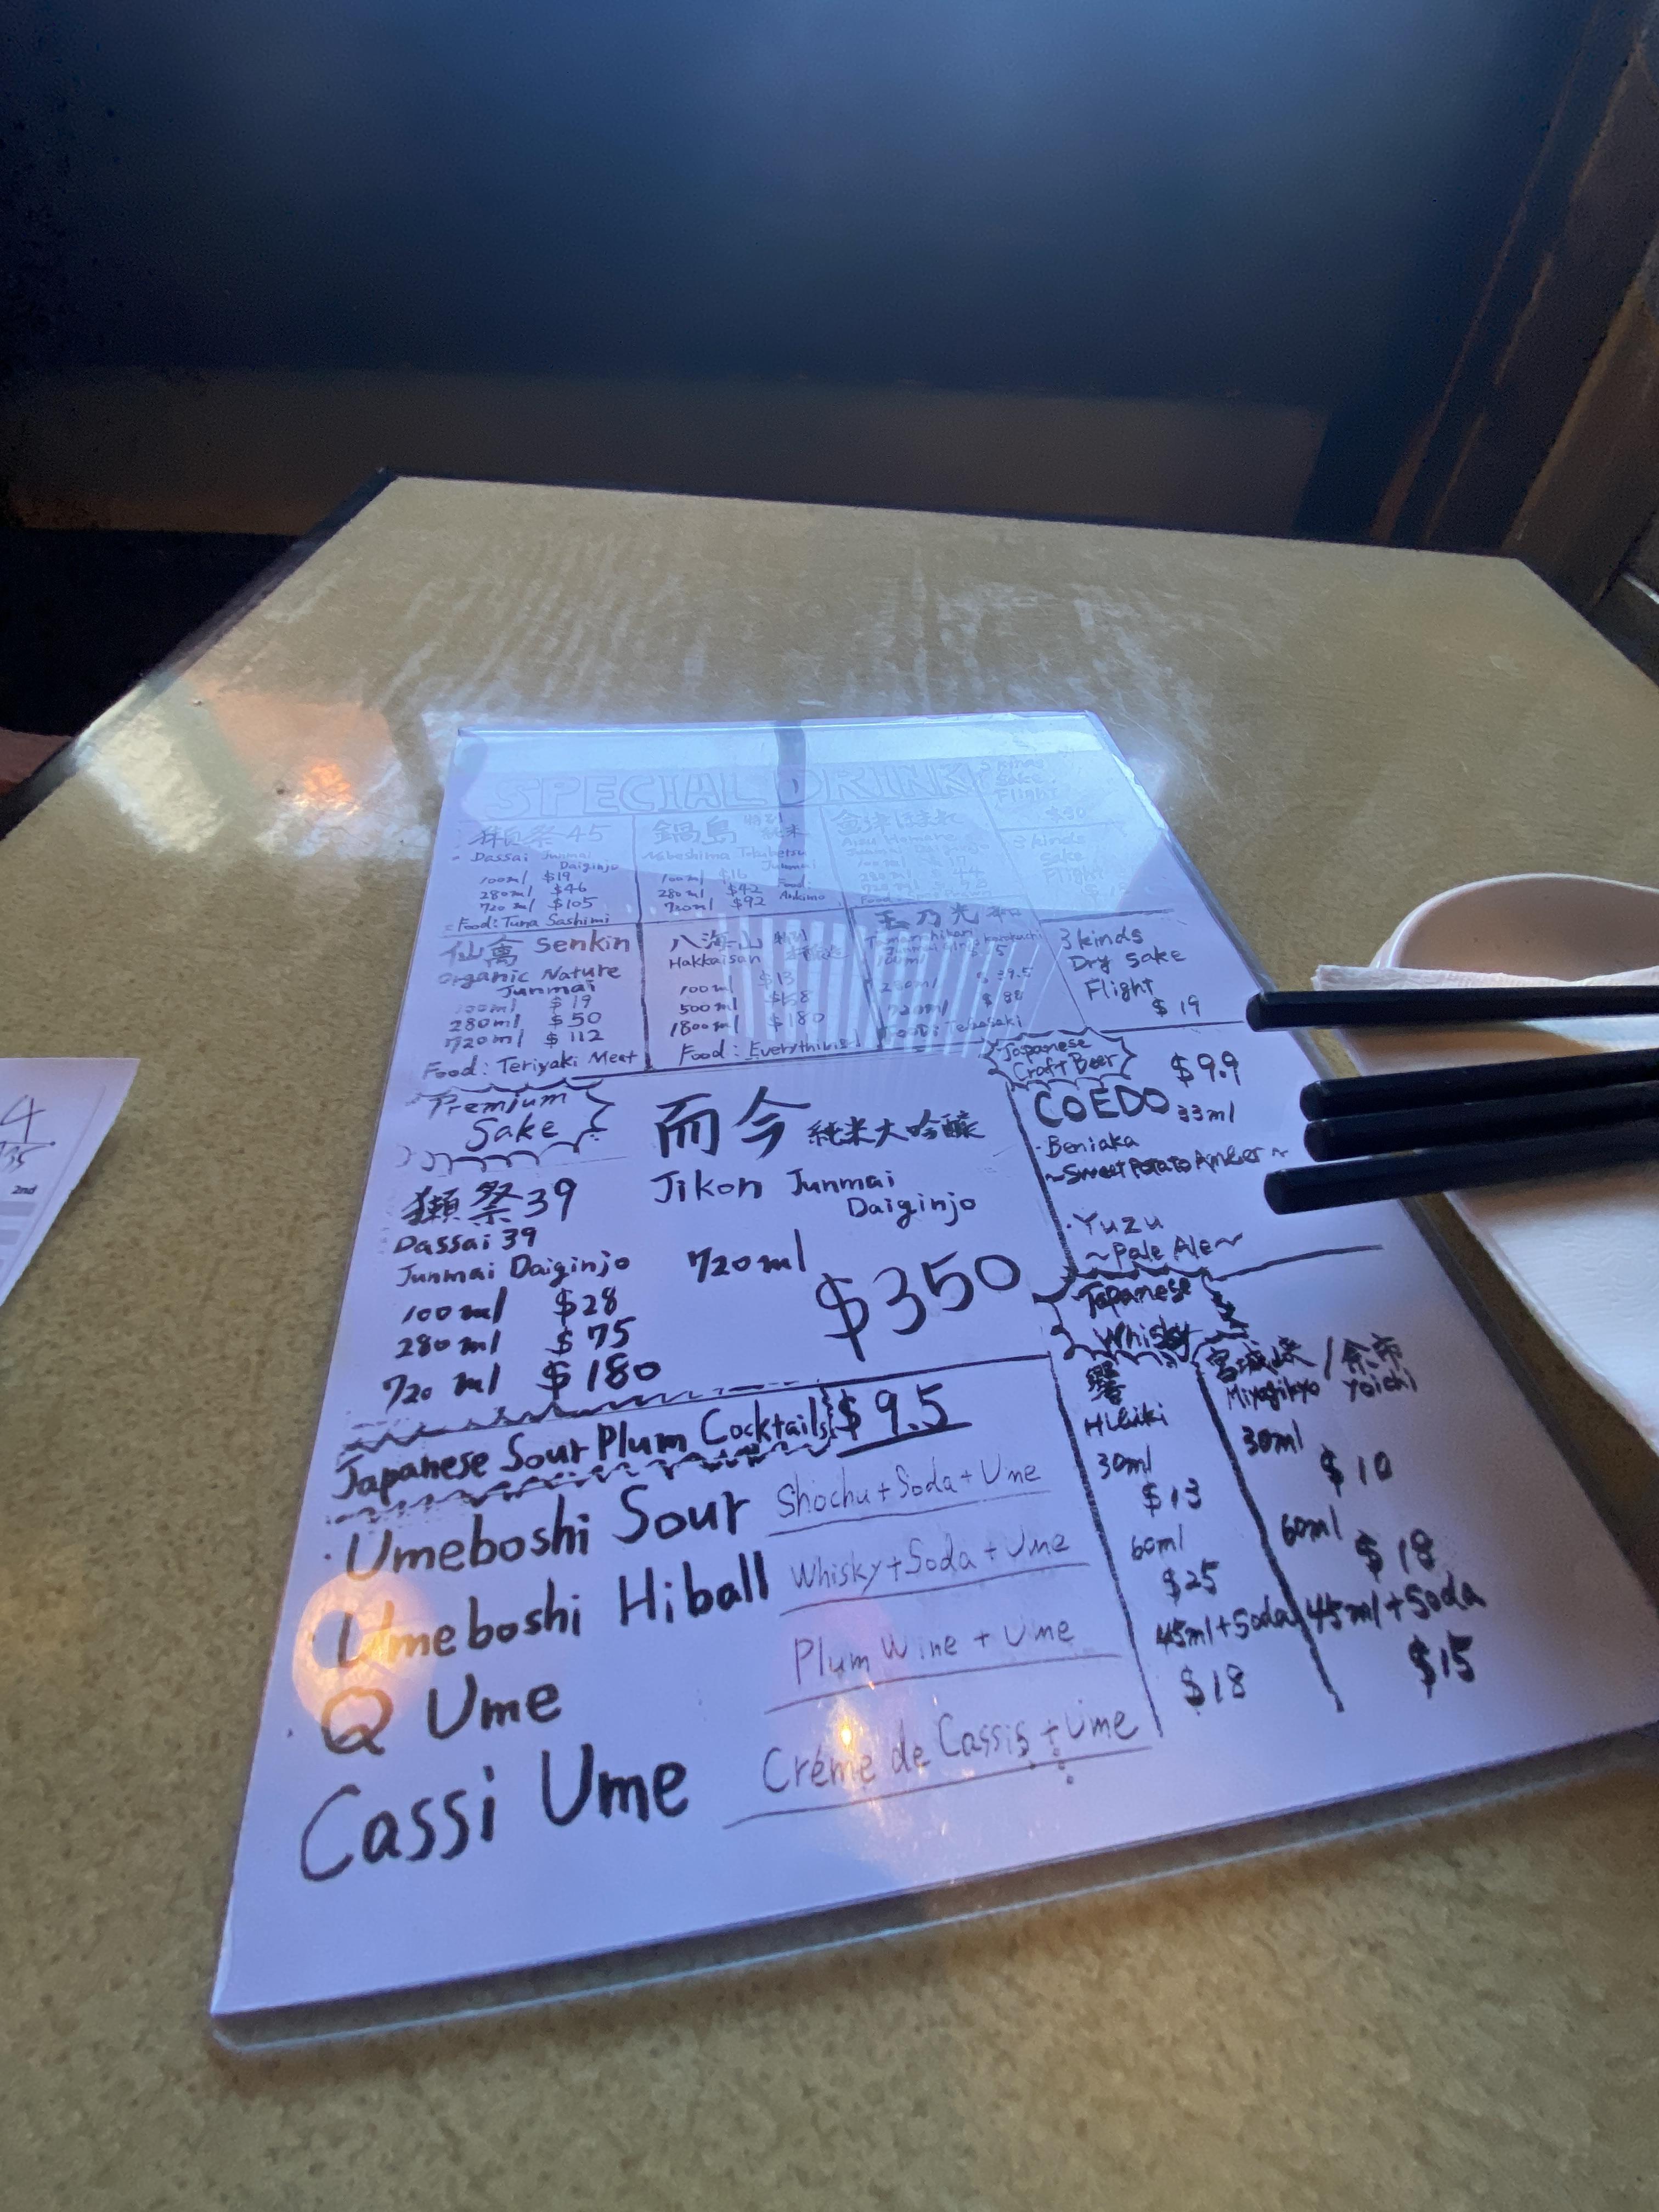 SPECIAL DRINK
獺祭 45
Dassai Junmai
Daiginjo
100ml $19
280ml $46
720ml $105
Food: Tuna Sashimi
鍋島 特別
純米
Nabeshima Tokubetsu
Junmai
100ml $16
280ml $42
720ml $92
Food:
Ankimo
会津ほまれ
Aizu Homare
100ml
280ml
720ml
Food:
3 kinds
Sake
Flight
$30
3 kinds
Sake
Flight
仙禽 Senkin
Organic Nature
Junmai
100ml $19
280ml $50
720ml $112
Food: Teriyaki Meat
八海山 特別
Hakkaisan
100ml $13
500ml $58
1800ml $180
Food: Everything!
玉乃光
100ml
280ml $39.5
720ml $98
Food: Tebasaki
3 kinds
Dry Sake
Flight
$19
Premium
Sake
獺祭 39
Dassai 39
Junmai Daiginjo
100ml $28
280ml $75
720ml $180
而今 純米大吟醸
Jikon Junmai
Daiginjo
720ml
$350
Japanese
Craft Beer
$9.9
COEDO 33ml
・Beniaka
~Sweet Potato Amber~
・Yuzu
~Pale Ale~
Japanese
Whisky
響
Hibiki
30ml
$13
60ml
$25
45ml+Soda
$18
宮城峡 / 余市
Miyagikyo Yoichi
30ml
$10
60ml
$18
45ml+Soda
$15
Japanese Sour Plum Cocktails $9.5
・Umeboshi Sour Shochu+Soda+Ume
Umeboshi Hiball Whisky+Soda+Ume
・Q Ume Plum Wine+Ume
Cassi Ume Créme de Cassis+Ume
4
2nd